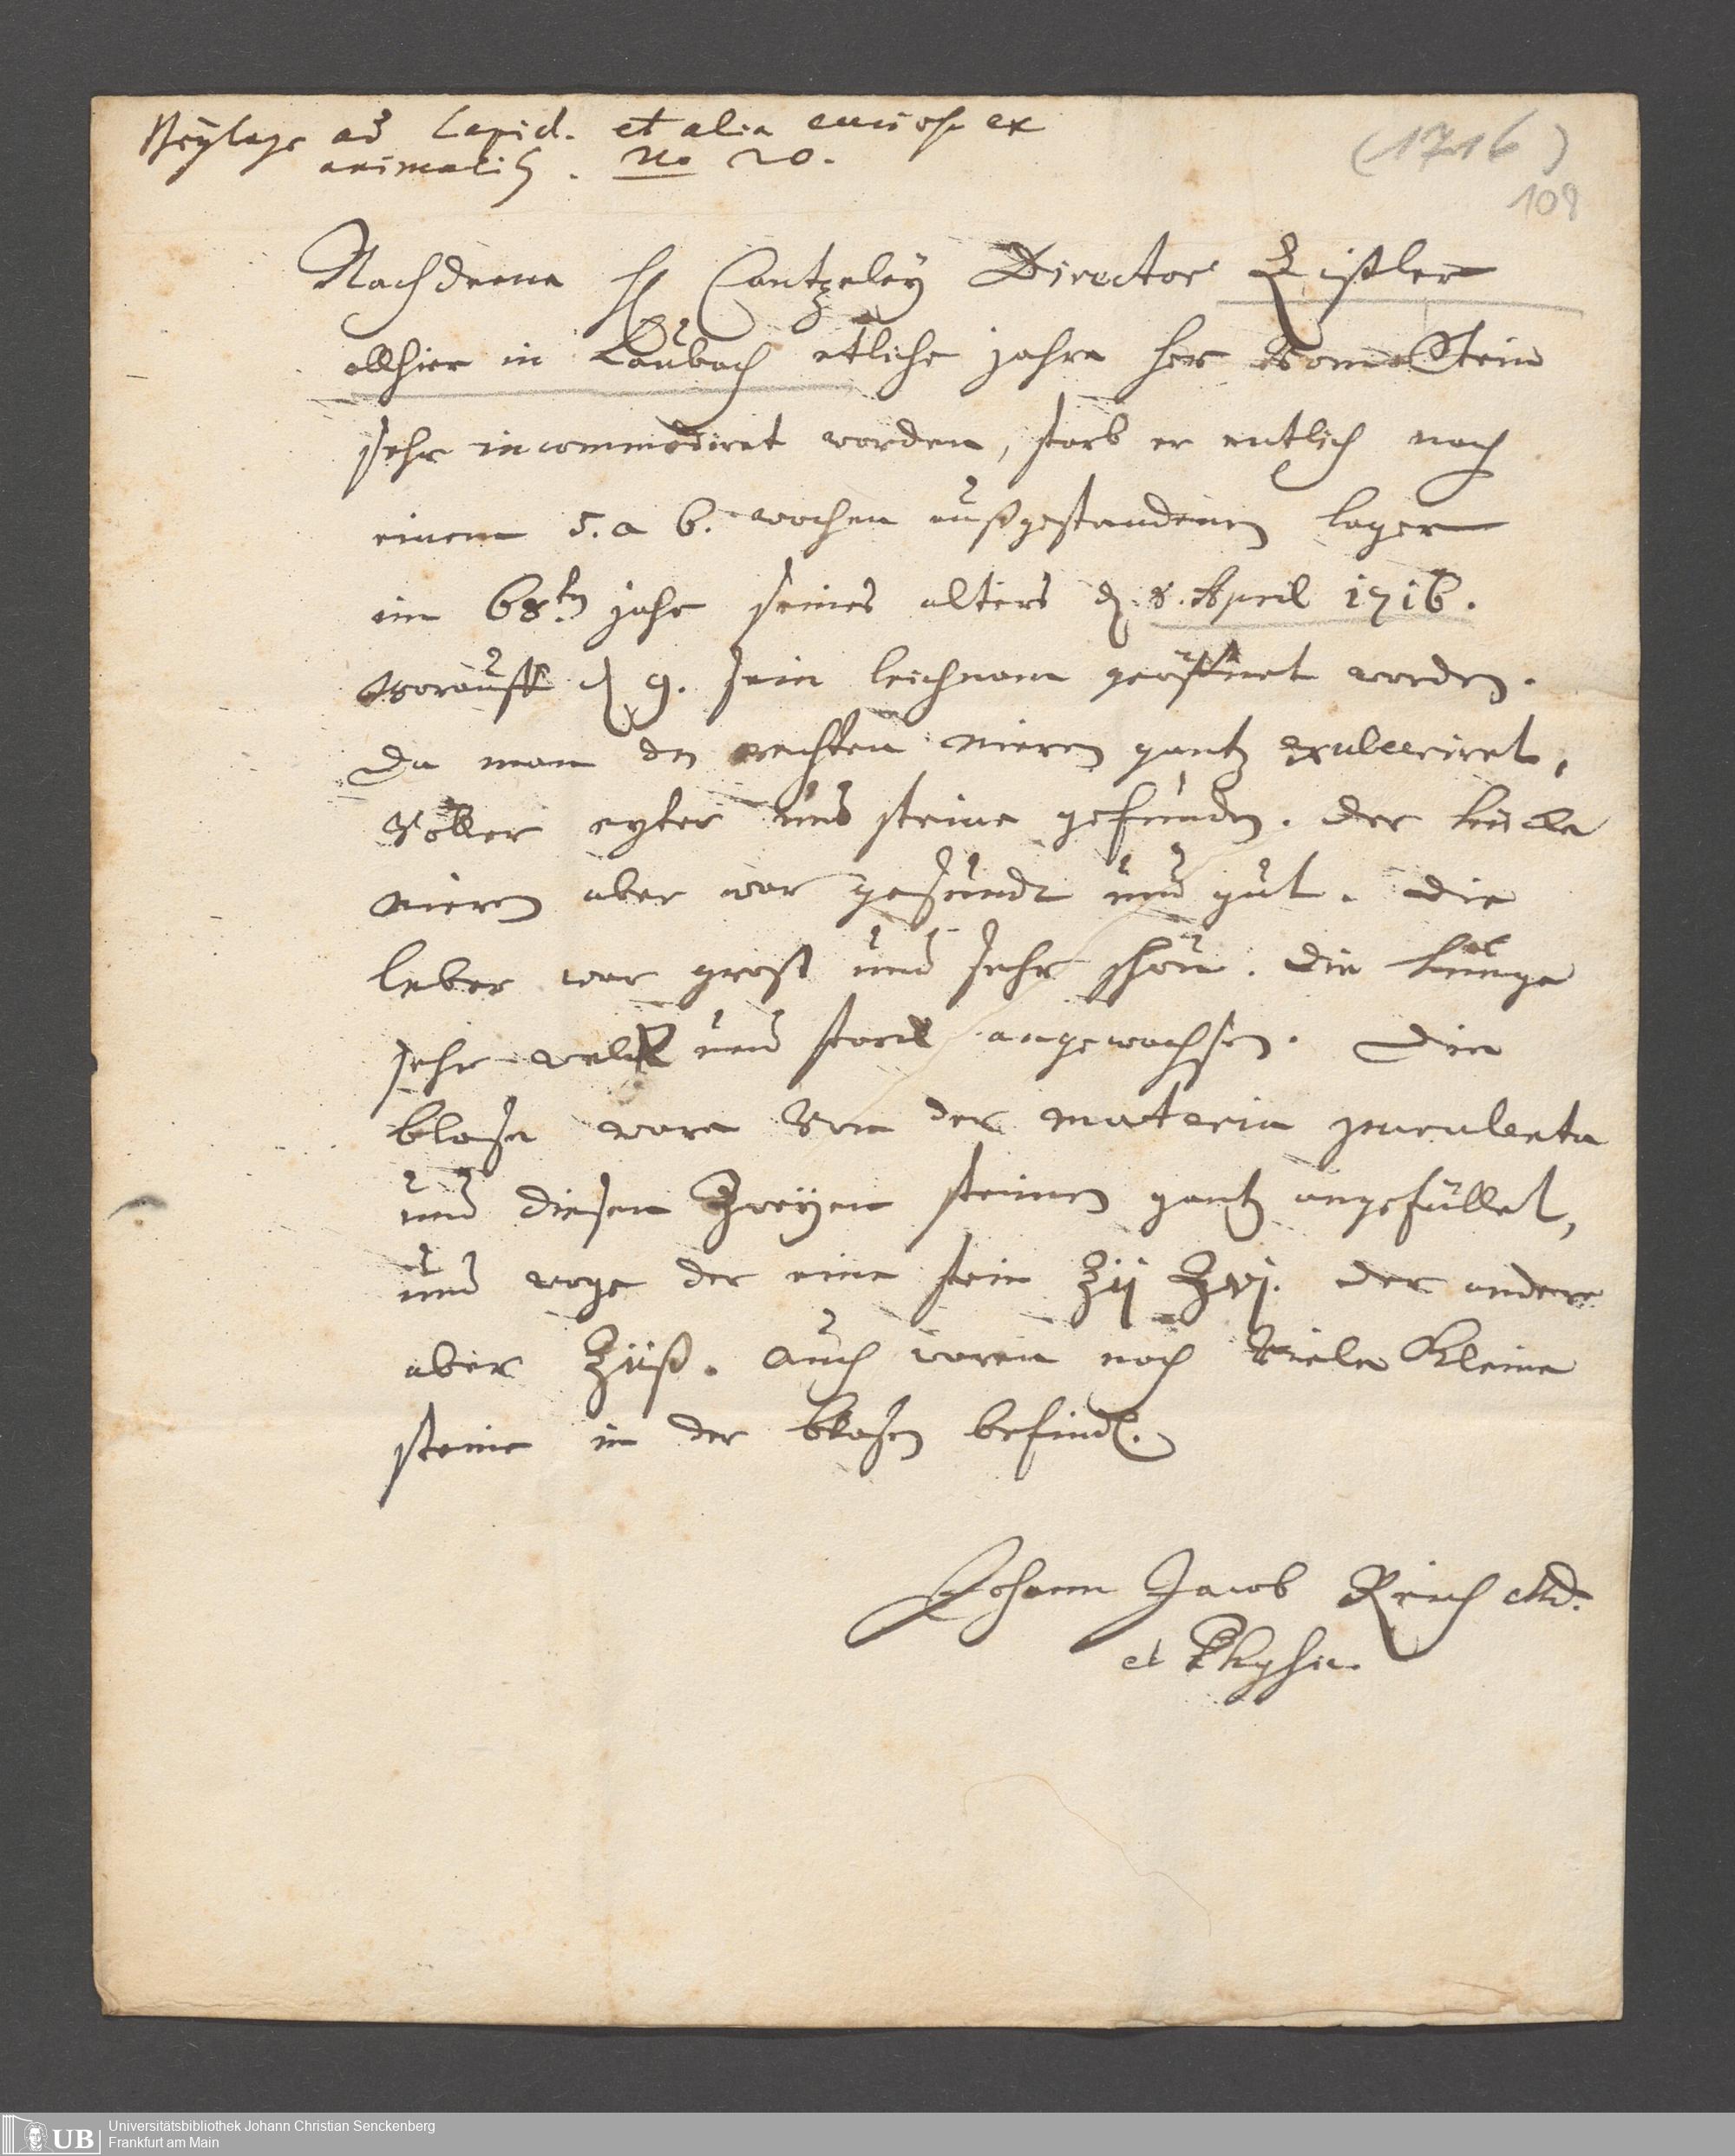 Beylage ad Lapid. et alia curiosa ex
animalib. No 20.
(1716)
109
Nachdeme H Cantzeley Director
allhier in Laubach etliche jahre her vom Stein
sehr incommodiret worden, starb er entlich nach
einem 5. a 6. wochen außgestandenen lager
im 68.ten jahr seines alters d. 8. April 1716.
Worauff d 9. sein leichnam geöffnet worden.
Da man den rechten nieren gantz exulceriret,
Voller eyter und steine gefunden. der lincke
nieren aber war gesundt und gut. die
leber war grost und sehr schön. die lunge
sehr welck und starck angewachsen. Die
blase ware von der materia purulenta
und diesen zweyen steinen gantz angefüllet,
und woge der eine stein ℥ij ʒvj. der andere
aber ℥iiß. Auch waren noch viele Kleine
steine in der blasen befindl.
Johann Jacob MD.
et Physic.
UB
Universitätsbibliothek Johann Christian Senckenberg
Frankfurt am Main